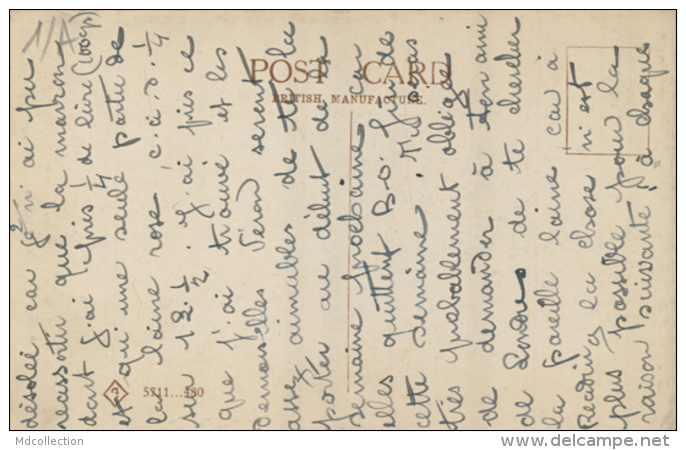 1/A
désolée car je n'ai pu
reassortir que la marron
dont j'ai pris 1/4 de livre (100gr)
et qui une seule partie de
la laine rose c.à.d. 1/4
sur 12 1/2. J'ai pris ce
que j'ai trouvé et les
Demoiselles seront
assez aimables de te la
porter au début de la
semaine prochaine car
elles quittent B.O. fin de
cette semaine. My sera
très probablement obligée
de demander à son ami
de Londres de te chercher
la pareille laine car à
Reading la chose n'est
plus possible pour la
raison suivante : à chaque
POST CARD
BRITISH MANUFACTURE.
5711...480
Mdcollection
www.delcampe.net